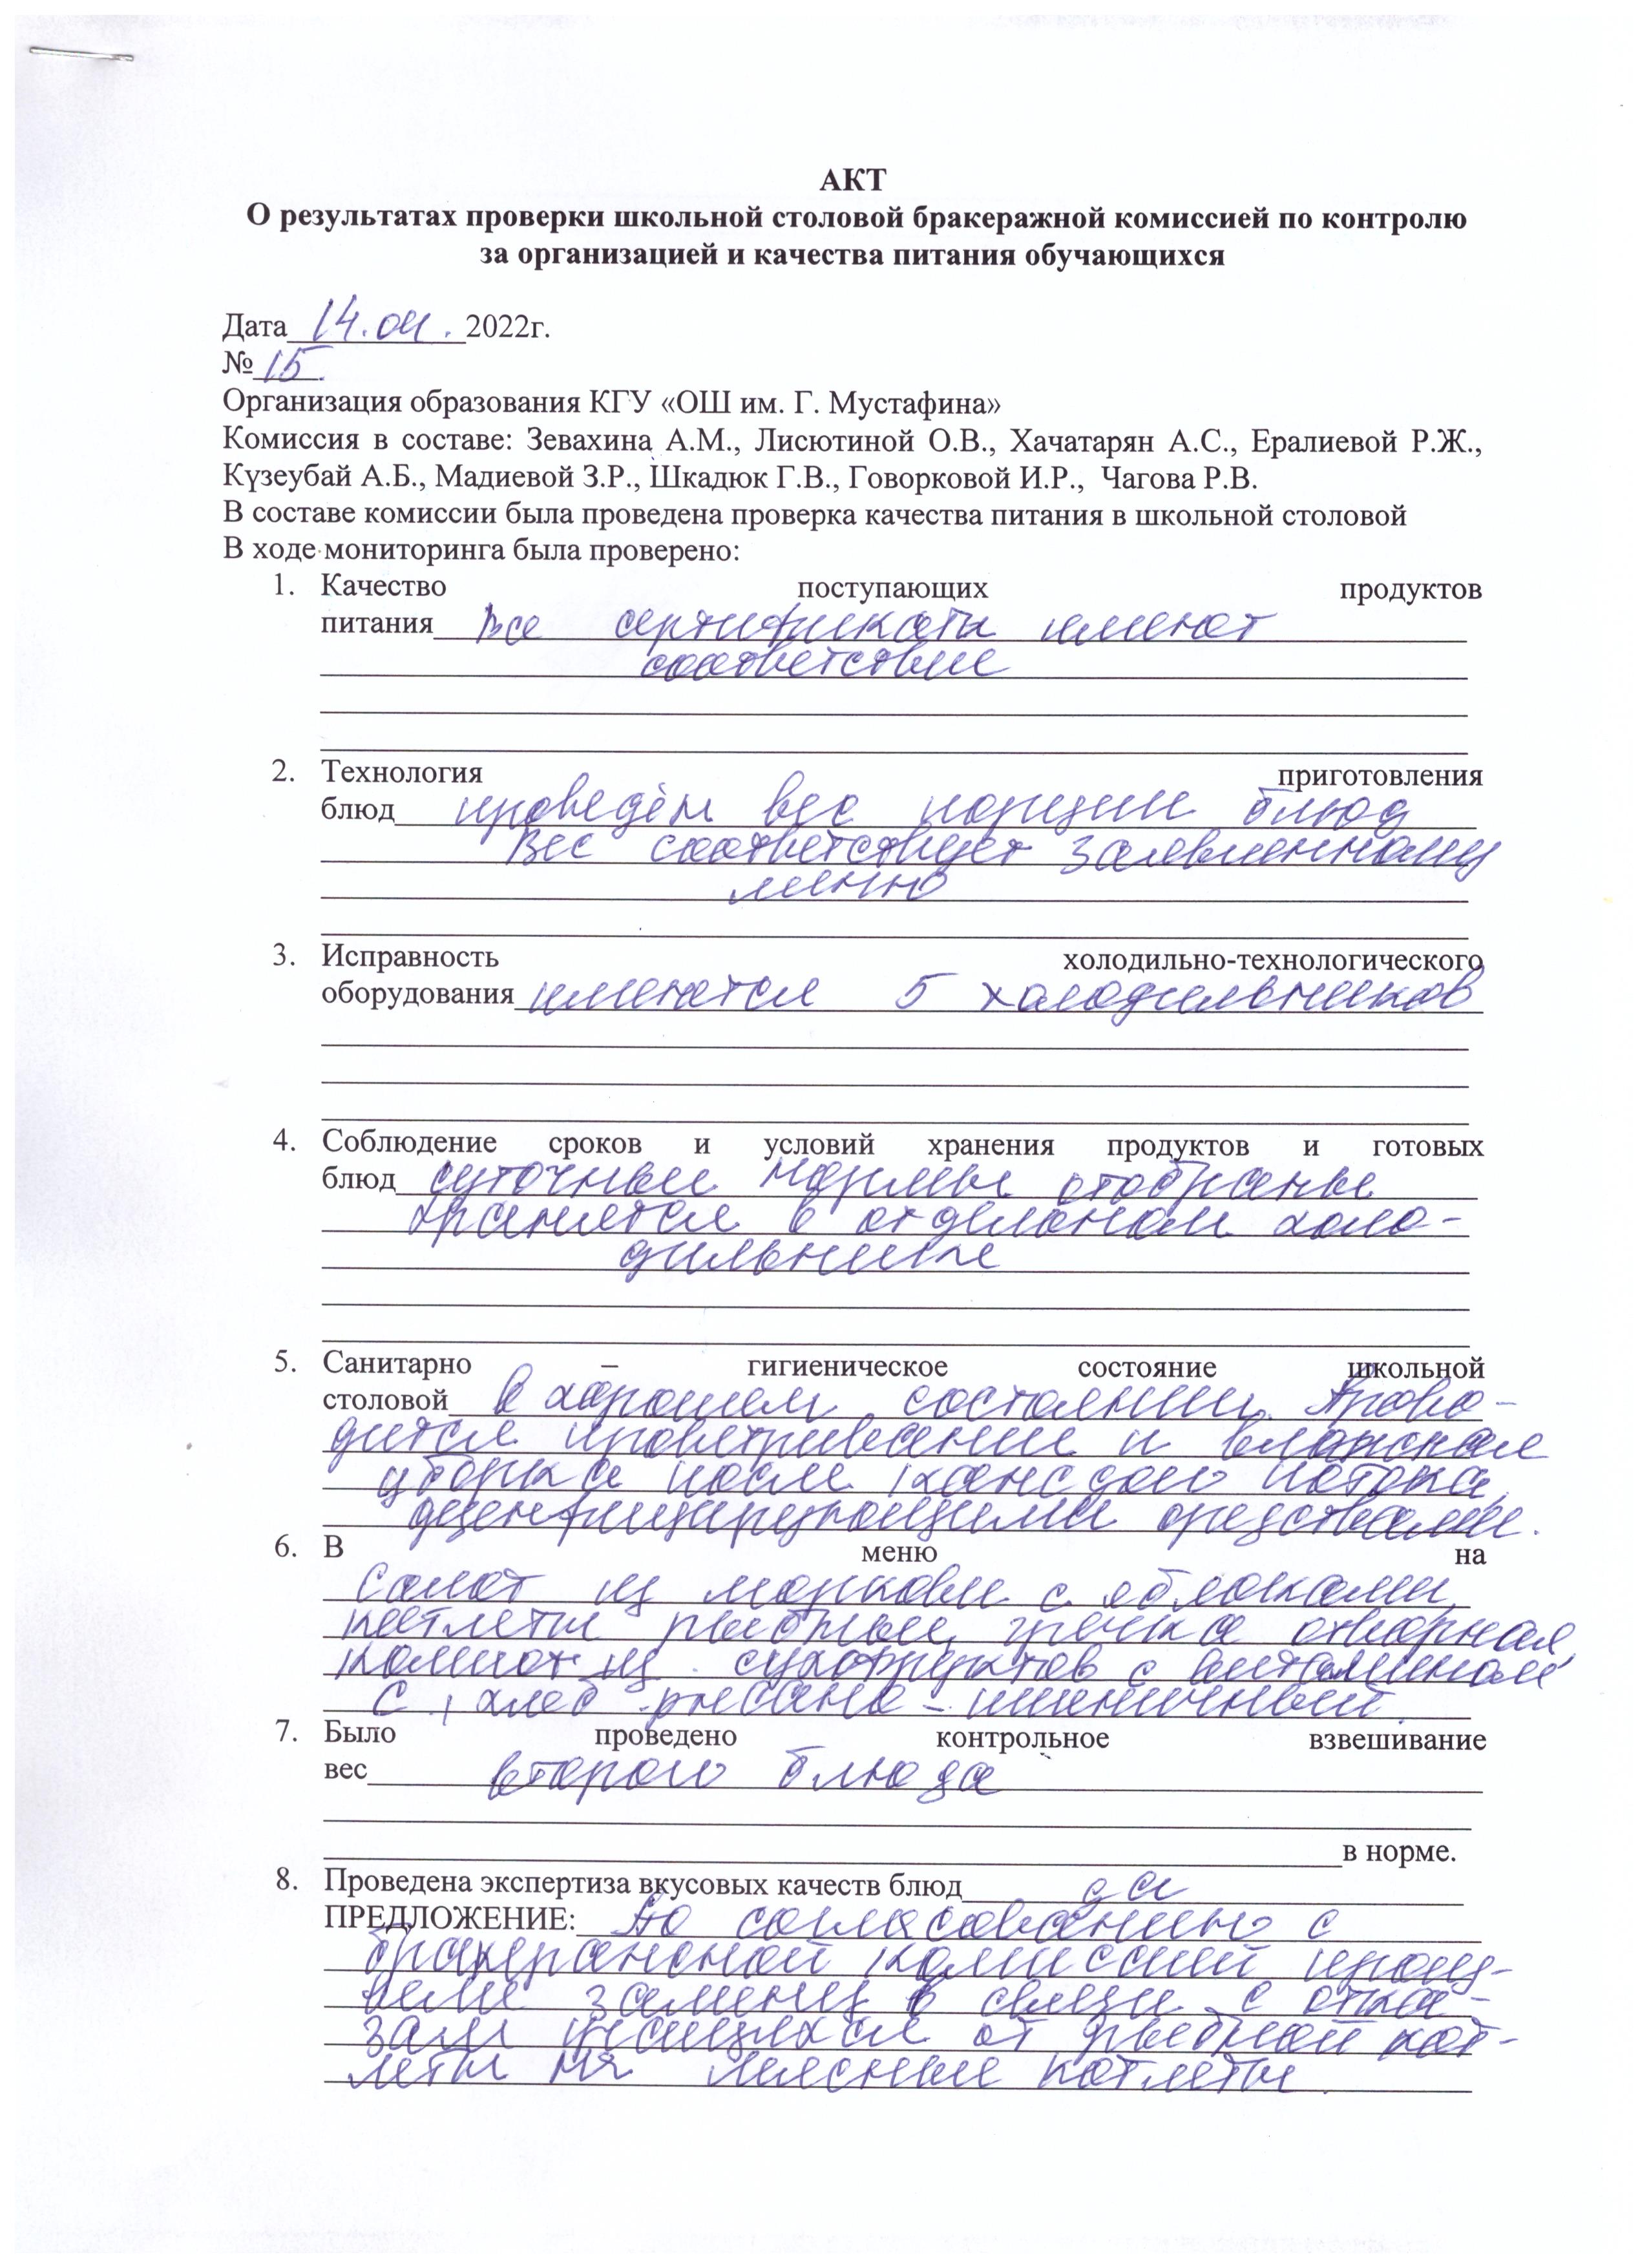 АКТ
О результатах проверки школьной столовой бракеражной комиссией по контролю
за организацией и качества питания обучающихся
Дата 14.04.2022г.
№ 15
Организация образования КГУ «ОШ им. Г. Мустафина»
Комиссия в составе: Зевахина А.М., Лисютиной О.В., Хачатарян А.С., Ералиевой Р.Ж.,
Күзеубай А.Б., Мадиевой З.Р., Шкадюк Г.В., Говорковой И.Р., Чагова Р.В.
В составе комиссии была проведена проверка качества питания в школьной столовой
В ходе мониторинга была проверено:
1. Качество поступающих продуктов
питания Все сертификаты имеют
соответствие
2. Технология приготовления
блюд проведён вес порции блюд
Вес соответствует заявленному
меню
3. Исправность холодильно-технологического
оборудования имеются 5 холодильников
4. Соблюдение сроков и условий хранения продуктов и готовых
блюд суточные нормы отобраны
хранятся в отдельном холо-
дильнике
5. Санитарно – гигиеническое состояние школьной
столовой в хорошем состоянии. Прово-
дится проветривание и влажная
уборка после каждого потока
дезенфицирующими средствами.
6. В меню на
Салат из моркови с яблоками,
котлеты рыбные, гречка отварная,
компот из сухофруктов с витамином
С, хлеб ржано-пшеничный.
7. Было проведено контрольное взвешивание
вес второго блюда
в норме.
8. Проведена экспертиза вкусовых качеств блюд да
ПРЕДЛОЖЕНИЕ: По согласованию с
бракеражной комиссией
замену в связи с отка-
зом учащихся от рыбной кот-
леты на мясные котлеты.